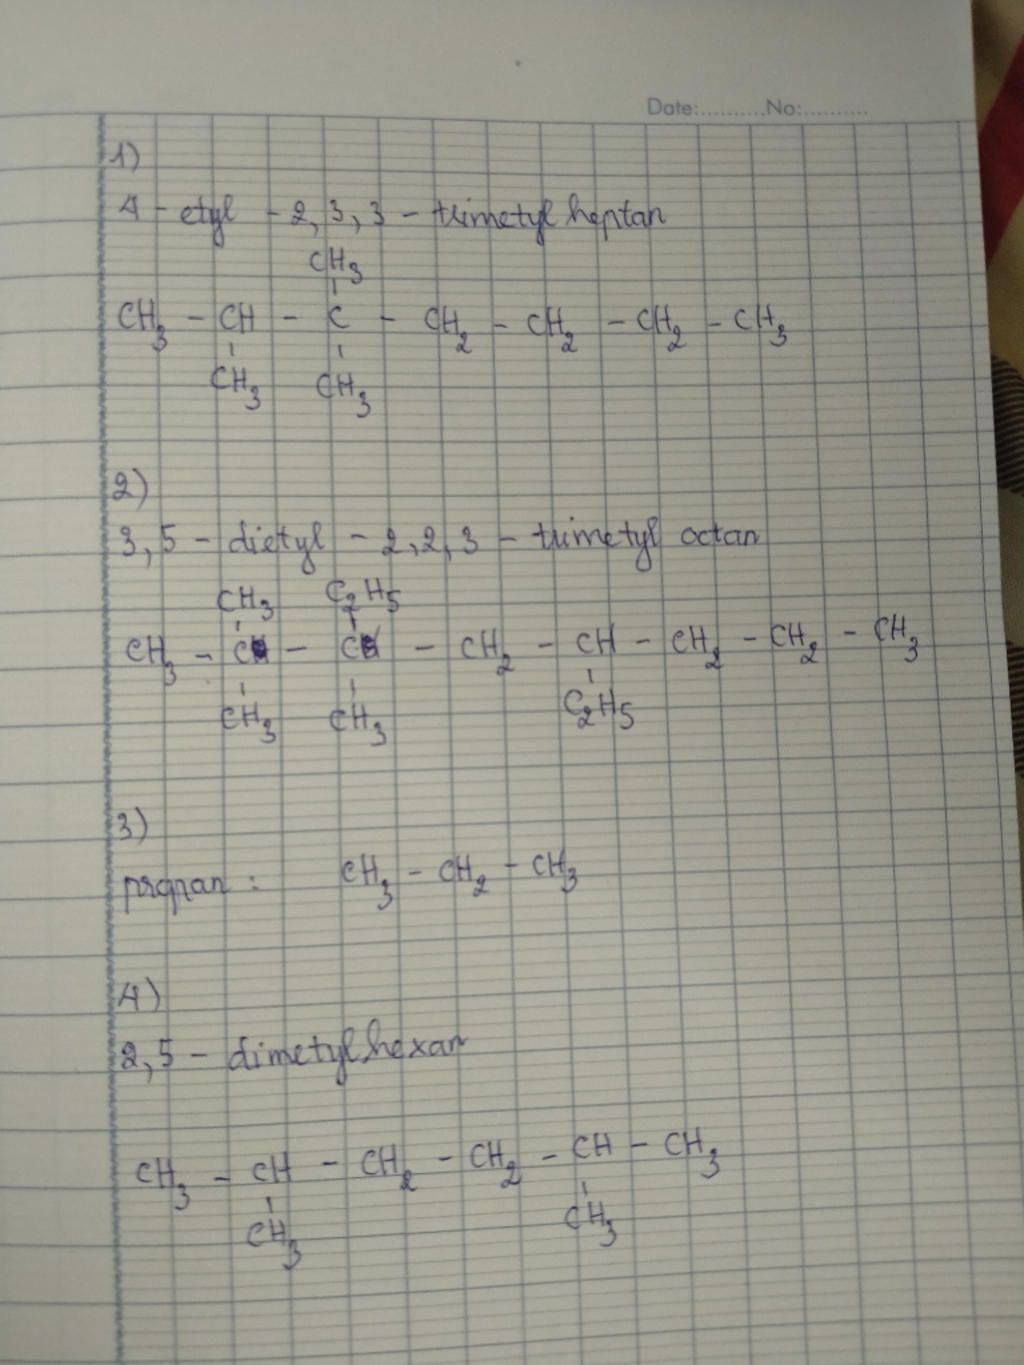 Date:..........No:..........
1)
4 - etyl - 2, 3, 3 - trimetyl heptan
CH3
CH3 - CH - C - CH2 - CH2 - CH2 - CH3
CH3 CH3
2)
3, 5 - dietyl - 2, 2, 3 - trimetyl octan
CH3 C2H5
CH3 - C - C - CH2 - CH - CH2 - CH2 - CH3
CH3 CH3 C2H5
3)
propan : CH3 - CH2 - CH3
4)
2, 5 - dimetyl hexan
CH3 - CH - CH2 - CH2 - CH - CH3
CH3 CH3